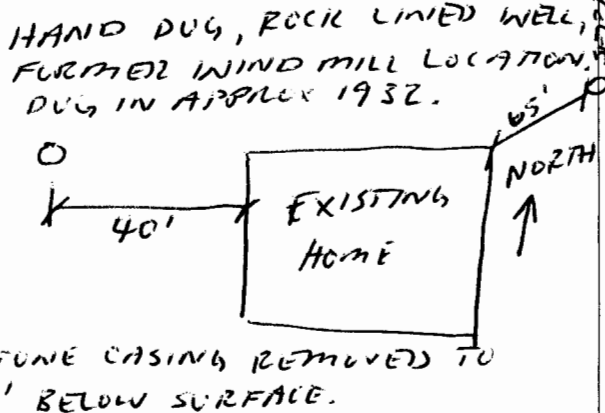 HAND DUG, ROCK LINED WELL,
FORMER WIND MILL LOCATION.
DUG IN APPROX 1932.
65'
NORTH
40'
EXISTING
HOME
CASING REMOVED TO
' BELOW SURFACE.